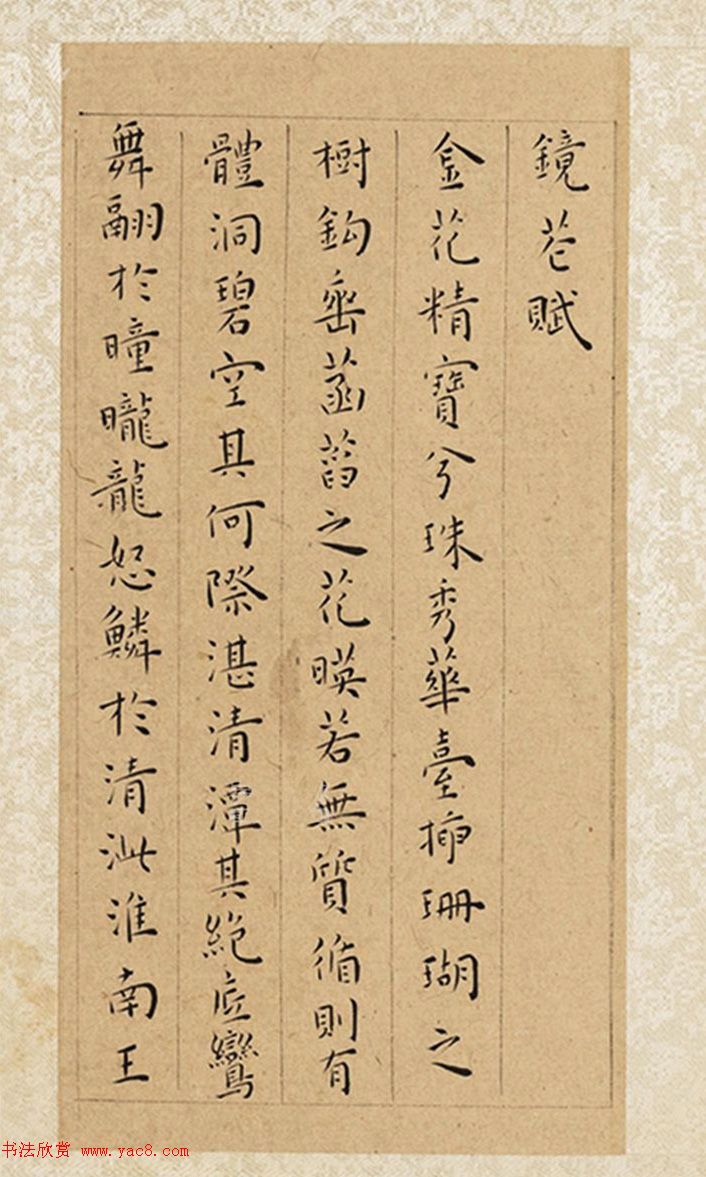 鏡花賦
金花精寶兮珠秀華臺掩珊瑚之
樹鈎密菡萏之花暎若無質循則有
體洞碧空其何際湛清潭其絕底鸞
舞翮於曈曨龍怒鱗於清泚淮南王
书法欣赏 www.yac8.com